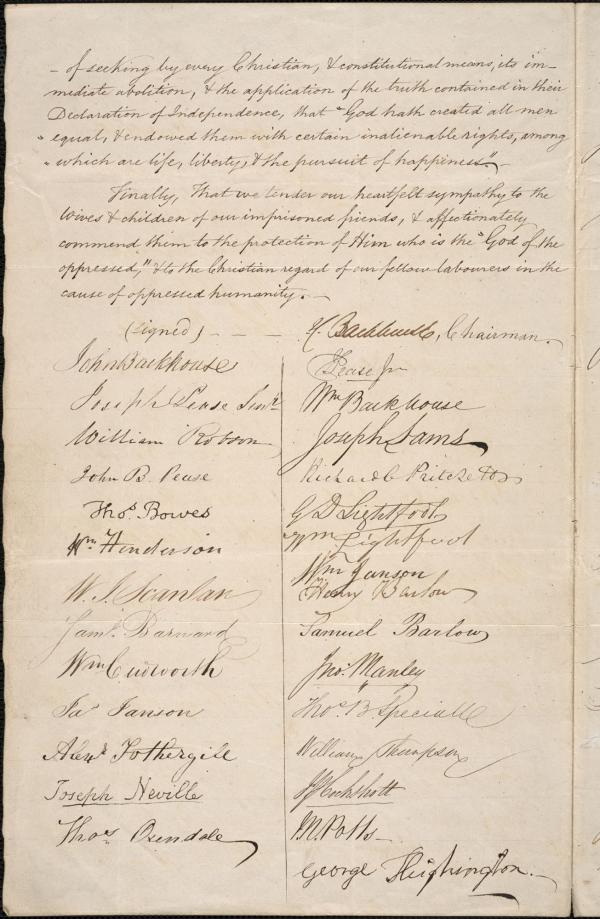 – of seeking by every Christian, & constitutional means, its im–
mediate abolition, & the application of the truth contained in their
Declaration of Independence, that "God hath created all men
" equal, & endowed them with certain inalienable rights, among
" which are life, liberty, & the pursuit of happiness". –
Finally, That we tender our heartfelt sympathy to the
wives & children of our imprisoned friends, & affectionately
commend them to the protection of Him who is the "God of the
oppressed," & to the Christian regard of our fellow labourers in the
cause of oppressed humanity. –
(signed) – – – Backhouse, Chairman.
John Backhouse
Joseph Pease Senr
William Robson
John B. Pease
Thos. Bowes
Wm. Henderson
W. J. Scanlan
Saml. Barnard
Wm Cudworth
Jas Janson
Alexr Fothergill
Joseph Neville
Thos Oxendale
Pease Jr
Wm Backhouse
Joseph Sams
Richard C Pritchett
G D Lightfoot
Wm Lightfoot
Wm Janson
Henry Barlow
Samuel Barlow
Jno. Manley
Thos. B. Speciall
William Thompson
M. Potts
George Heighington.